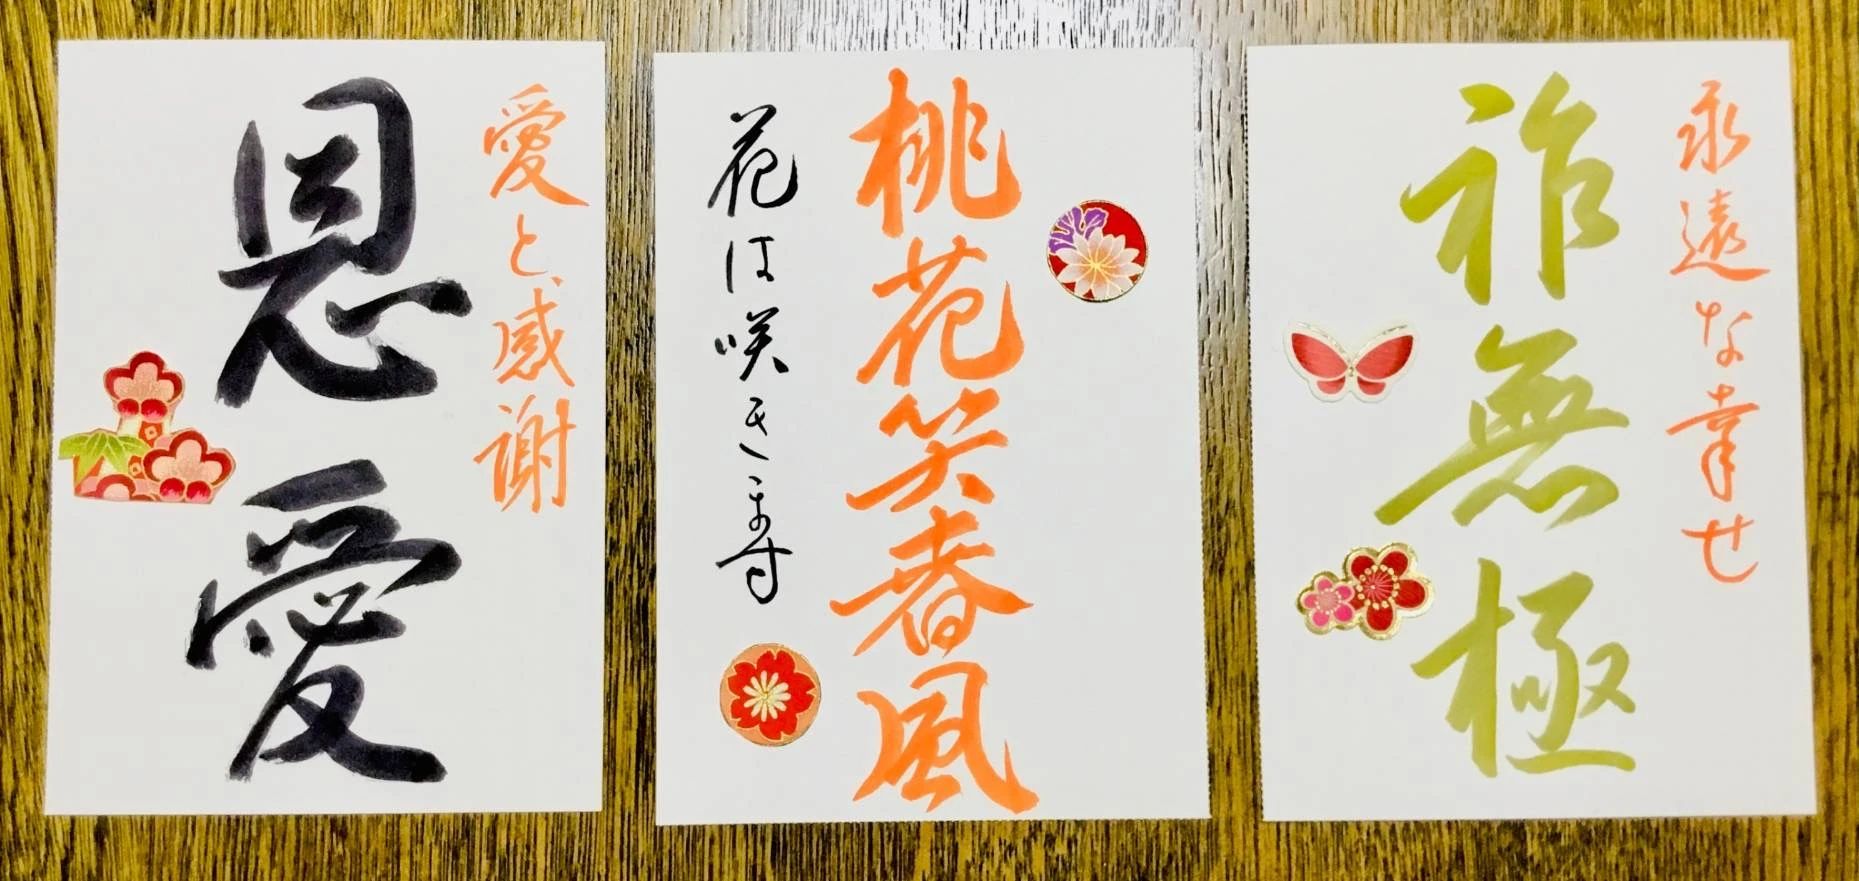 愛と感謝
恩愛
桃花笑春風
花は咲きま寿
永遠な幸せ
祚無極